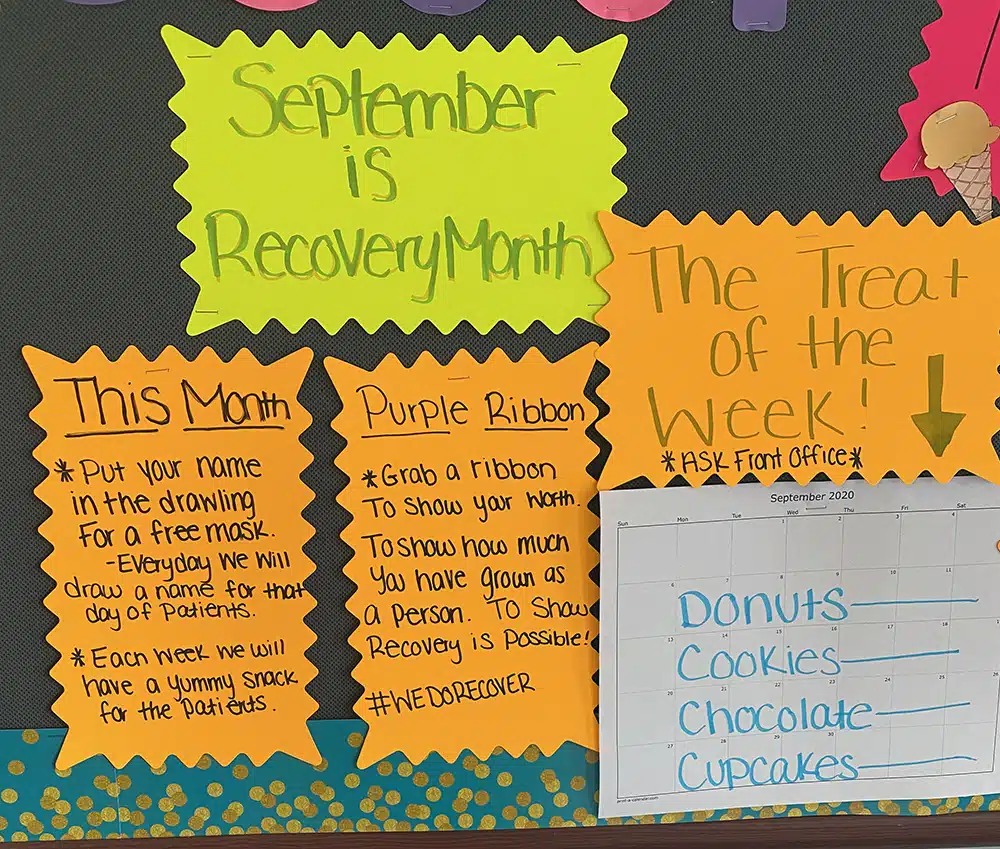 September
is
Recovery Month
This Month
*Put your name
in the drawling
For a free mask.
-Everyday We Will
draw a name for that
day of Patients.
*Each week we will
have a yummy snack
for the Patients.
Purple Ribbon
*Grab a ribbon
To Show your Worth.
To show how much
You have grown as
a Person. To Show
Recovery is Possible!
#WEDORECOVER
The Treat
of the
Week!
*ASK Front Office*
September 2020
Sun Mon Tue Wed Thu Fri Sat
1 2 3 4
6 7 8 9 10 11
Donuts
13 14 15 16 17 18 19
Cookies
20 21 22 23 24 25 26
Chocolate
27 28 29 30
Cupcakes
print-a-calendar.com